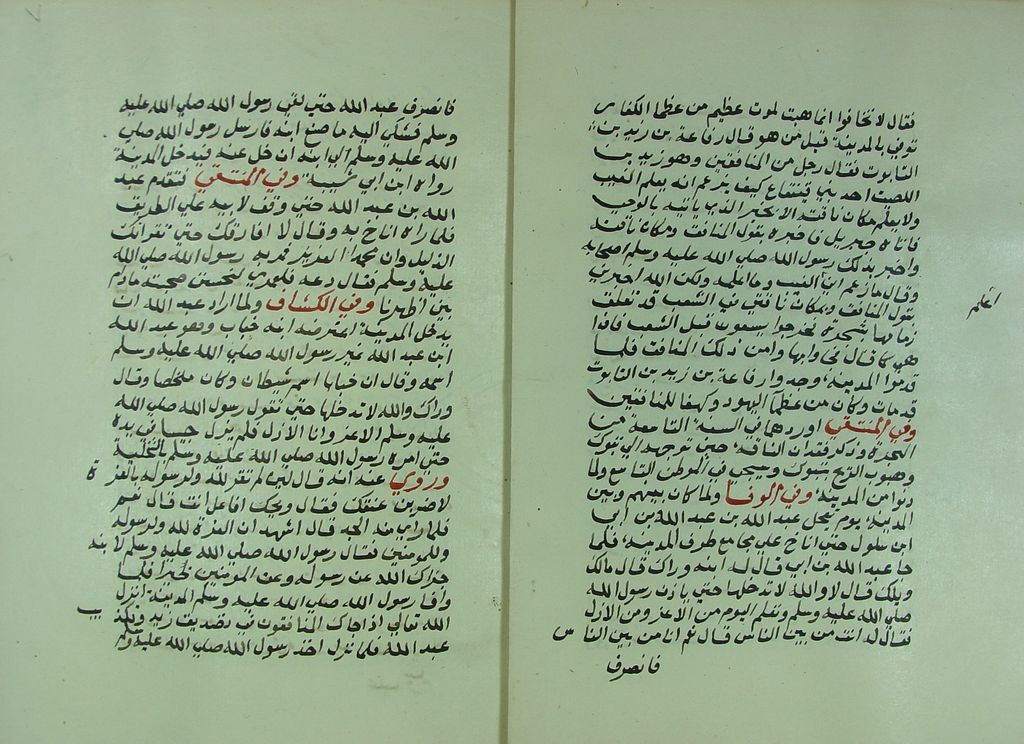 فقال لا تخافوا انما هبت لموت عظيم من عظما الكفار
توفي بالمدينة قيل من هو قال رفاعة بن زيد بن
التابوت فقال رجل من المنافقين وهو زيد بن
اللصيت احد بني قينقاع كيف يزعم انه يعلم الغيب
ولا يعلم مكان ناقته الا يخبره الذي ياتيه بالوحي
فاتاه جبريل فاخبره بقول المنافق ومكان ناقته
واخبر بذلك رسول الله صلي الله عليه وسلم اصحابه
وقال ما ازعم اني الغيب وما اعلمه ولكن الله اخبرني
اعلم
بقول المنافق وبمكان ناقتي هي في الشعب قد تعلق
زمامها بشجرة فخرجوا يسعون قبل الشعب فاذا
هي كما قال فجاوا بها وامن ذلك المنافق فلما
قدموا المدينة وجدوا رفاعة بن زيد بن التابوت
قد مات وكان من عظما اليهود وكهفا للمنافقين
وفي المنتقي اوردهما في السنة التاسعة من
الهجرة وذكر فقدان الناقة حين توجهه الي تبوك
وهبوب الريح بتبوك وسيجي في الموطن التاسع ولما
دنوا من المدينة وفي الوفا ولما كان بينهم وبين
المدينة يوم تعجل عبد الله بن عبد الله بن أبي
ابن سلول حتي اناخ علي مجامع طرق المدينة فلما
جا عبد الله بن ابي قال له ابنه وراك قال مالك
ويلك قال لا والله لا تدخلها حتي ياذن رسول الله
صلي الله عليه وسلم وتعلم اليوم من الاعز ومن الاذل
فقال له انت من بين الناس قال نعم انا من بين الناس
فانصرف
فانصرف عبد الله حتي لقي رسول الله صلي الله عليه
وسلم فشكي اليه ما صنع ابنه فارسل رسول الله صلي
الله عليه وسلم الي ابنه ان خل عنه فدخل المدينة
رواه ابن ابي شيبة وفي المنتقي فتقدم عبد
الله بن عبد الله حتي وقف لابيه علي الطريق
فلما راه اناخ به وقال لا افارقك حتي تقر انك
الذليل وان محمدا العزيز فمر به رسول الله صلي الله
عليه وسلم فقال دعه فلعمري لنحسنن صحبته ما دام
بين اظهرنا وفي الكشاف ولما اراد عبد الله ان
يدخل المدينة اعترضه ابنه حباب وهو عبد الله
ابن عبد الله غير رسول الله صلي الله عليه وسلم
اسمه وقال ان حبابا اسم شيطان وكان مخلصا وقال
وراك والله لا تدخلها حتي تقول رسول الله صلي الله
عليه وسلم الاعز وانا الاذل فلم يزل حبيسا في يده
حتي امره رسول الله صلي الله عليه وسلم بالتخلية
وروي عنه انه قال لئن لم تقر لله ولرسوله بالعزة
لاضربن عنقك فقال ويحك افاعل انت قال نعم
فلما راي منه الجد قال اشهد ان العزة لله ولرسوله
وللمومنين فقال رسول الله صلي الله عليه وسلم لابنه
جزاك الله عن رسوله وعن المومنين خيرا فلما
وافا رسول الله صلي الله عليه وسلم المدينة انزل
الله تعالي اذا جاك المنافقون في تصديق زيد وتكذيب
عبد الله فلما نزل اخذ رسول الله صلي الله عليه وسلم